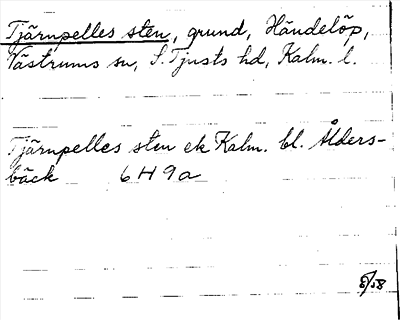 Tjärnpelles sten, grund, Händelöp,
Västrums sn, S. Tjusts hd, Kalm. l.
Tjärnpelles sten ek Kalm. bl. Ålders-
bäck 6H9a